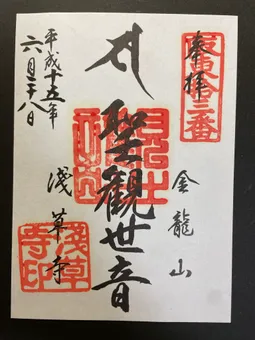 奉拝
坂東十三番
金龍山
聖観世音
浅草寺
浅草寺印
平成十五年
六月二十八日